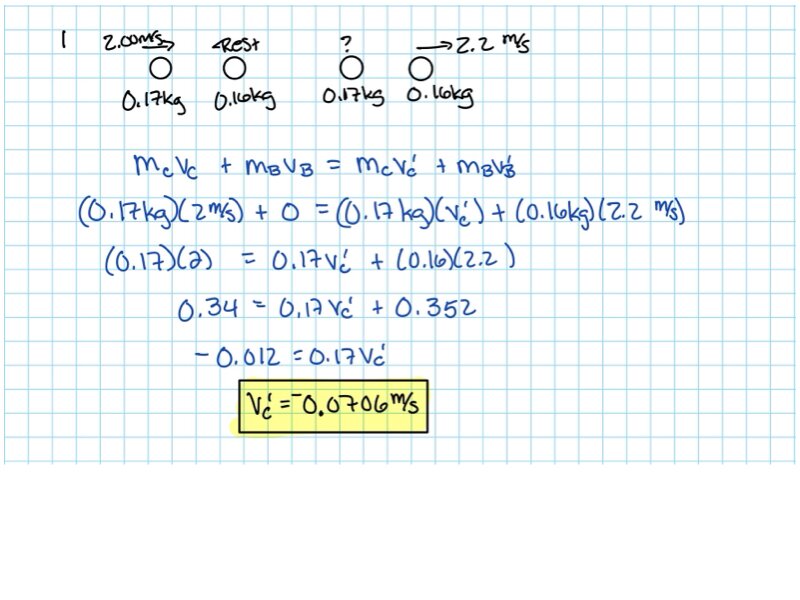 1 2.00m/s →  Rest  ?  → 2.2 m/s
0.17kg 0.16kg 0.17kg 0.16kg
mcvc + mBvB = mcvc' + mBvB'
(0.17kg)(2m/s) + 0 = (0.17kg)(vc') + (0.16kg)(2.2 m/s)
(0.17)(2) = 0.17vc' + (0.16)(2.2)
0.34 = 0.17vc' + 0.352
-0.012 = 0.17vc'
vc' = -0.0706 m/s